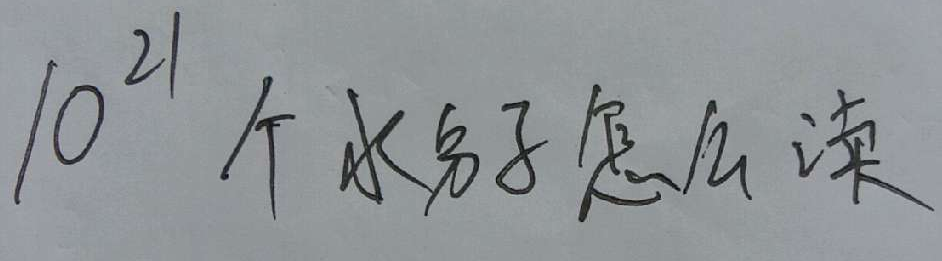 10²¹ 个水分子怎么读